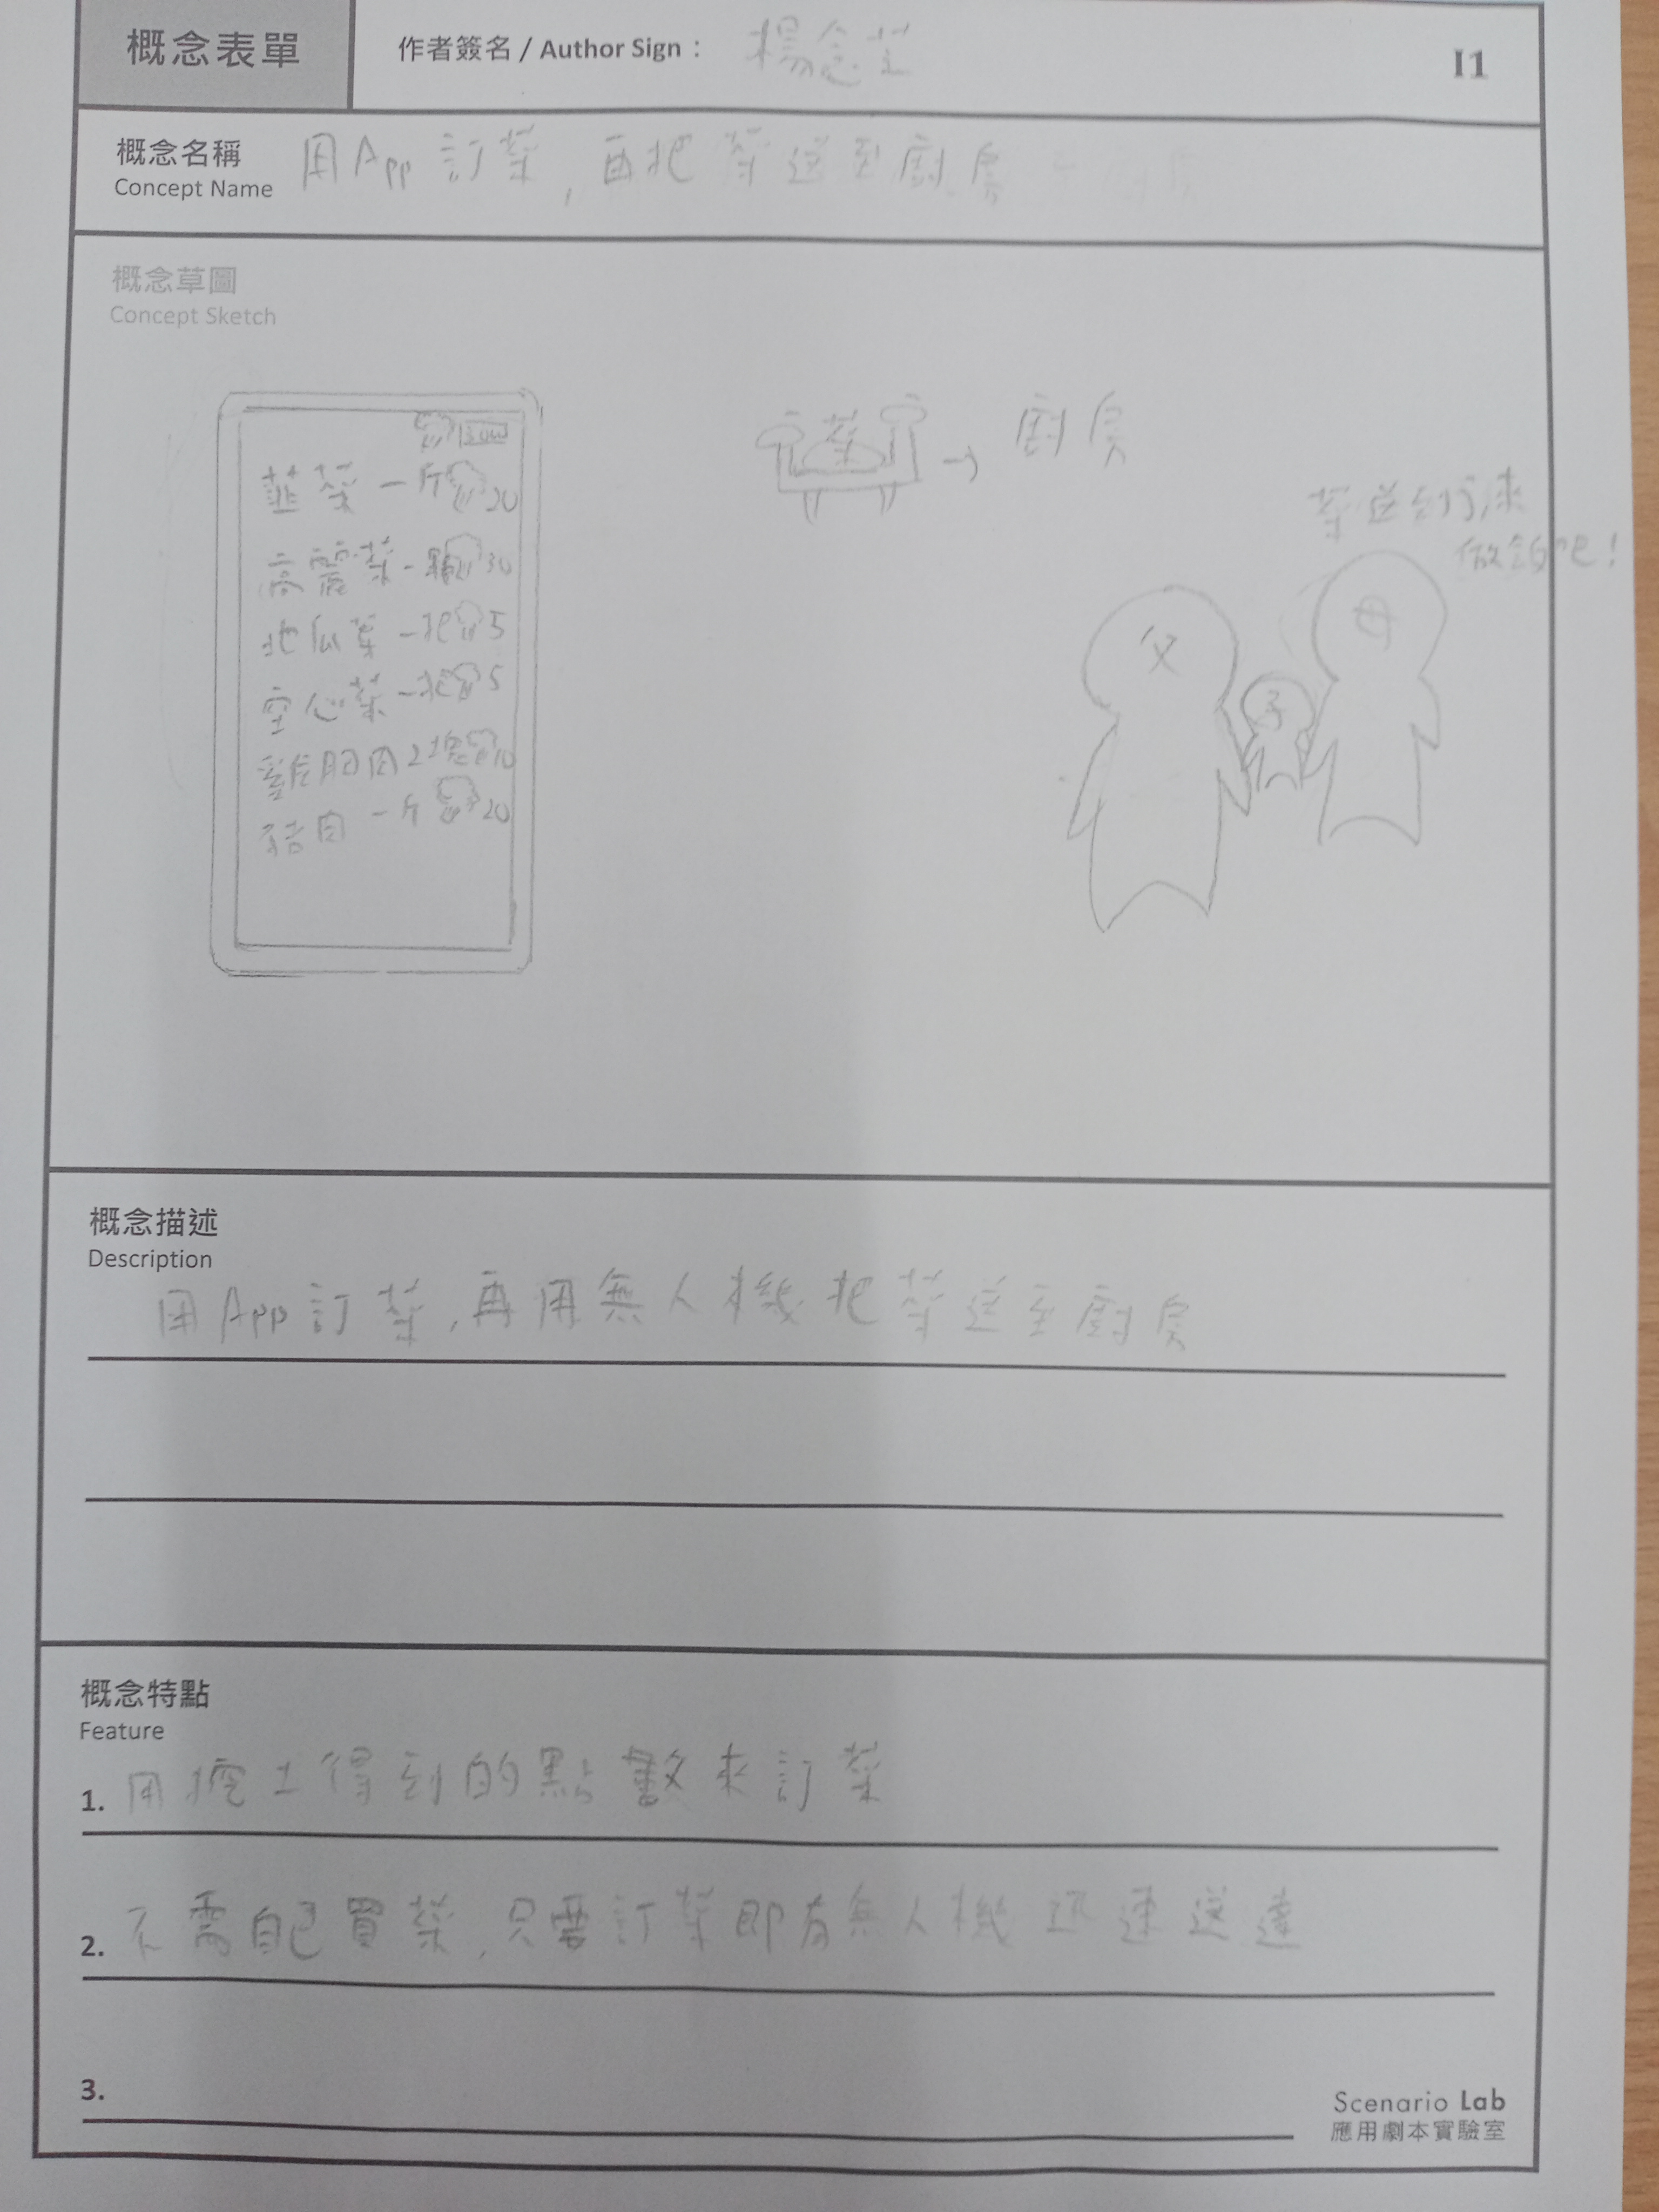 概念表單
作者簽名 / Author Sign：
楊念芝
I1
概念名稱
Concept Name
用App訂菜，再把菜送至廚房
概念草圖
Concept Sketch
韮菜一斤 20
高麗菜一顆 30
地瓜葉一把 5
空心菜一把 5
雞胸肉2塊 10
豬肉一斤 20
菜
→ 廚房
菜送到了,來
做飯吧!
父
子
母
概念描述
Description
用App訂菜,再用無人機把菜送至廚房
概念特點
Feature
1. 用挖土得到的點數來訂菜
2. 不需自己買菜,只要訂菜即有無人機迅速送達
3.
Scenario Lab
應用劇本實驗室